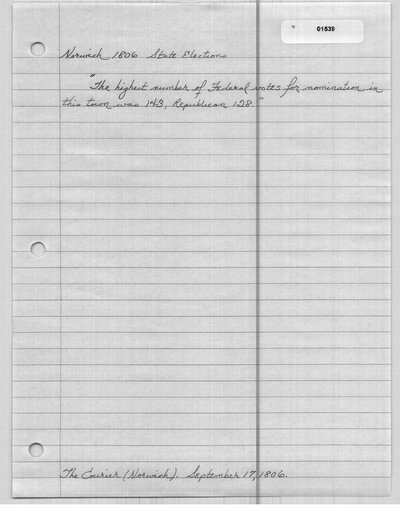 01539
Norwich 1806 State Elections
"The highest number of Federal votes for nomination in
this town was 143, Republican 128."
The Courier (Norwich). September 17, 1806.